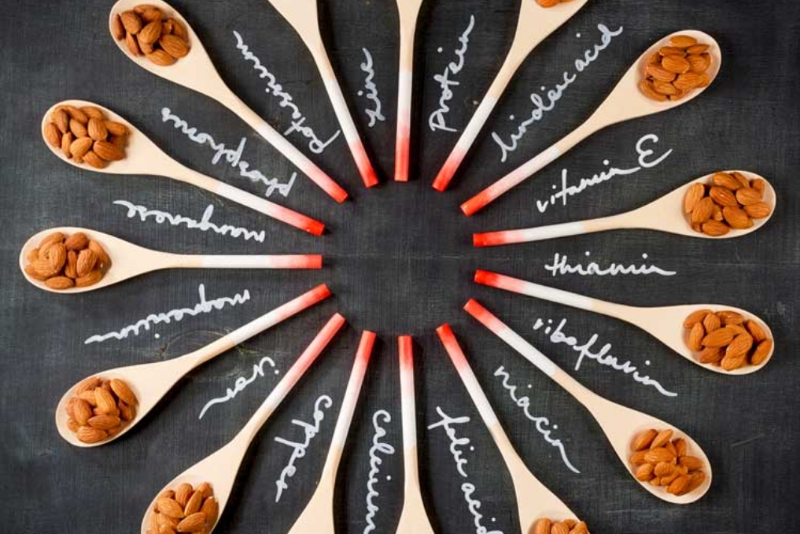 protein
linoleic acid
vitamin E
thiamin
riboflavin
niacin
folic acid
calcium
copper
iron
magnesium
manganese
phosphorous
potassium
zinc